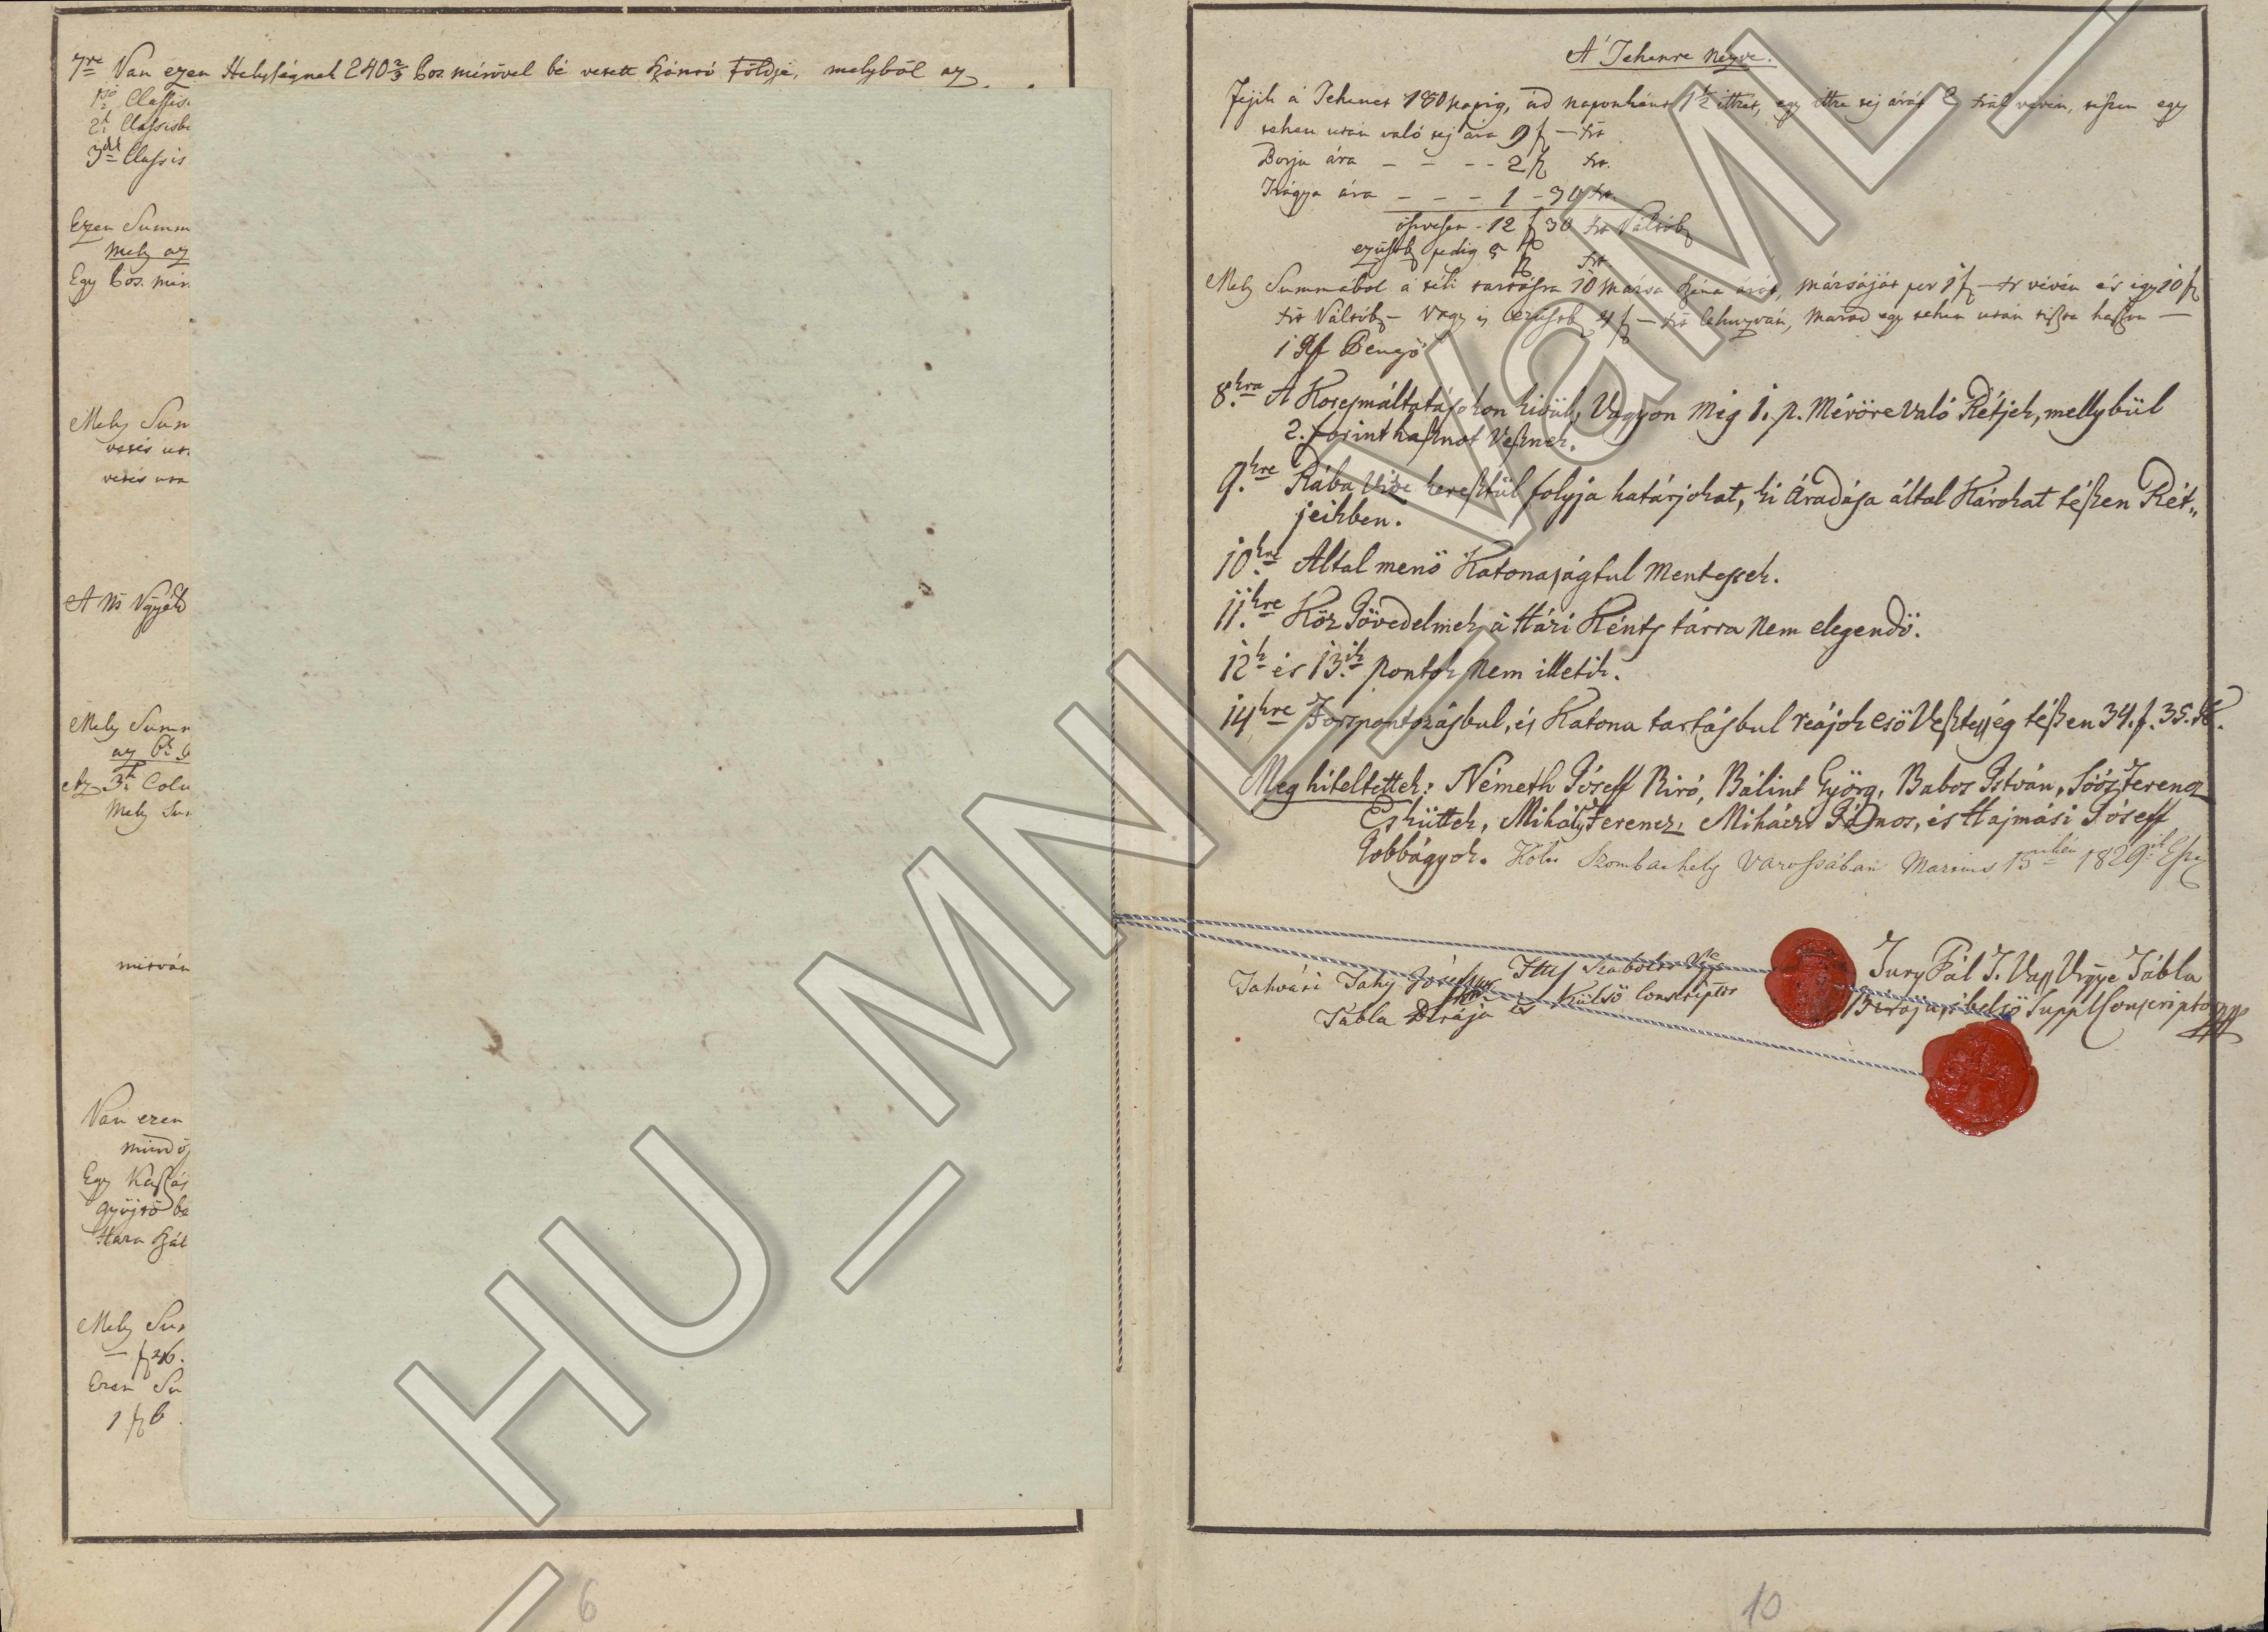 7re Van ezen Helységnek 240 2/3 Pos. mérővel bé vetett Szántó Földje, melyből az
1ső Classis
2k Classisb
3dik Classis
Ezen Summ
mely az
Egy Pos. mér
Mely Sum
vetés ut
vetés uta
A Ns Vgyék
Mely Summ
az 6k
Az 3k Colu
Mely Su
mitván
Van ezen
mind ös
Egy Kaszás
gyűjtő be
Hara szál
Mely Sum
— f 26.
Ezen Su
1 f 6
6
A' Tehenre nézve.
Fejik a Tehenet 180 napig, ád naponként 1 1/2 ittzét, egy ittze tej árát vévén, teszen egy
tehen után való tej ára 9 f — xr
Borju ára — — — 2 f xr.
Trágya ára — — — 1 - 30 xr.
öszvesen - 12 f 30 xr Váltób
ezüstb pedig 5 f xr.
Mely Summából a téli tartásra 10 mársa széna árát, mársáját per 1 f — xr vévén és igy 10 f
xr Váltób — Vagy is ezüstb 4 f — xr lehuzván, marad egy tehen után tiszta haszon —
1 Rf Pengő
8kra A Korcsmáltatásokon kivül, Vagyon még 1. p. Mérőre való Rétjek, mellybül
2. forint hasznot Vesznek.
9kre Rába Vize keresztül folyja határjokat, ki Áradása által Károkat tészen Rét„
jeikben.
10kre Által menő Katonaságtul Mentessek.
11kre Köz Jövedelmek a Házi Péntz tárra nem elegendő.
12k és 13ik pontok nem illetik.
14kre Forspontozásbul, és Katona tartásbul reájok eső Veszteség tészen 34. f. 35. x.
Meg hiteltettek: Németh Jóseff Biró, Bálint Györg, Babos István, Soós Ferencz
Esküttek, Mihály Ferencz, Mihácz János, és Hajmási Jóseff
Jobbágyok. Költ Szombathely Varossában Martius 15dikén 1829ik Eszt
Tahvári Tahy Jósef Ttes Szabolcs Vgye
Tábla Birája és Külső Conscriptor
Jury Pál T. Vass Vrgye Tábla
Birája, s belső Suppl Conscriptor
10
HU_MNL_VaML_I